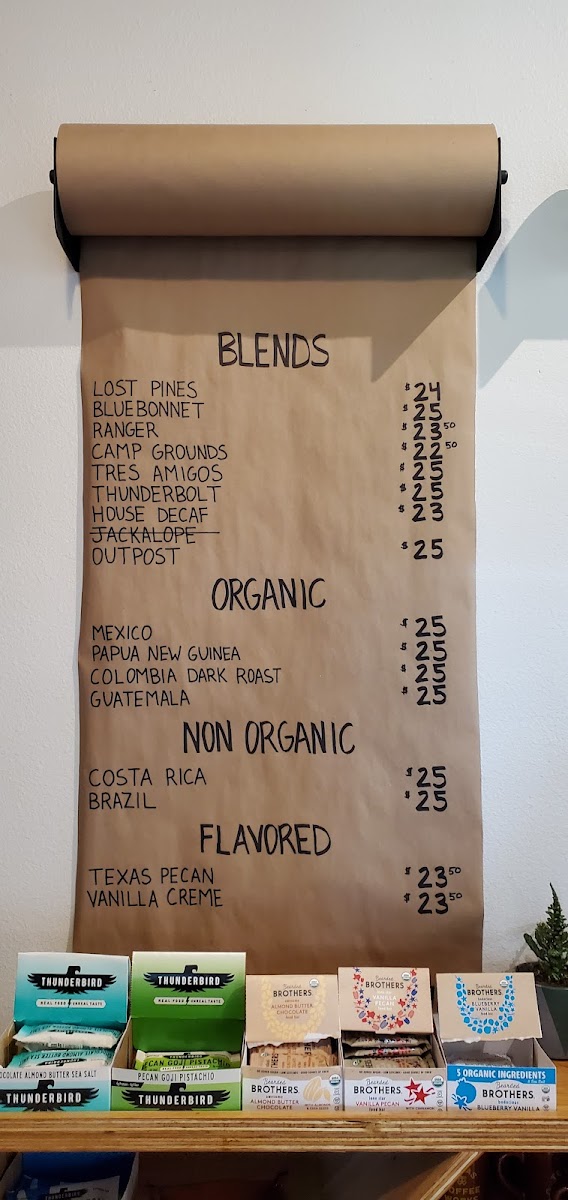 BLENDS
LOST PINES $24
BLUEBONNET $25
RANGER $23 50
CAMP GROUNDS $22 50
TRES AMIGOS $25
THUNDERBOLT $25
HOUSE DECAF $23
JACKALOPE
OUTPOST $25
ORGANIC
MEXICO $25
PAPUA NEW GUINEA $25
COLOMBIA DARK ROAST $25
GUATEMALA $25
NON ORGANIC
COSTA RICA $25
BRAZIL $25
FLAVORED
TEXAS PECAN $23 50
VANILLA CREME $23 50
THUNDERBIRD
REAL FOOD UNREAL TASTE
CHOCOLATE ALMOND BUTTER SEA SALT
THUNDERBIRD
THUNDERBIRD
REAL FOOD UNREAL TASTE
PECAN GOJI PISTACHIO
PECAN GOJI PISTACHIO
THUNDERBIRD
Bearded
BROTHERS
ALMOND BUTTER
CHOCOLATE
Bearded
BROTHERS
ALMOND BUTTER
CHOCOLATE
Bearded
BROTHERS
VANILLA
PECAN
Bearded
BROTHERS
VANILLA PECAN
Bearded
BROTHERS
BLUEBERRY
VANILLA
5 ORGANIC INGREDIENTS
Bearded
BROTHERS
bodacious
BLUEBERRY VANILLA